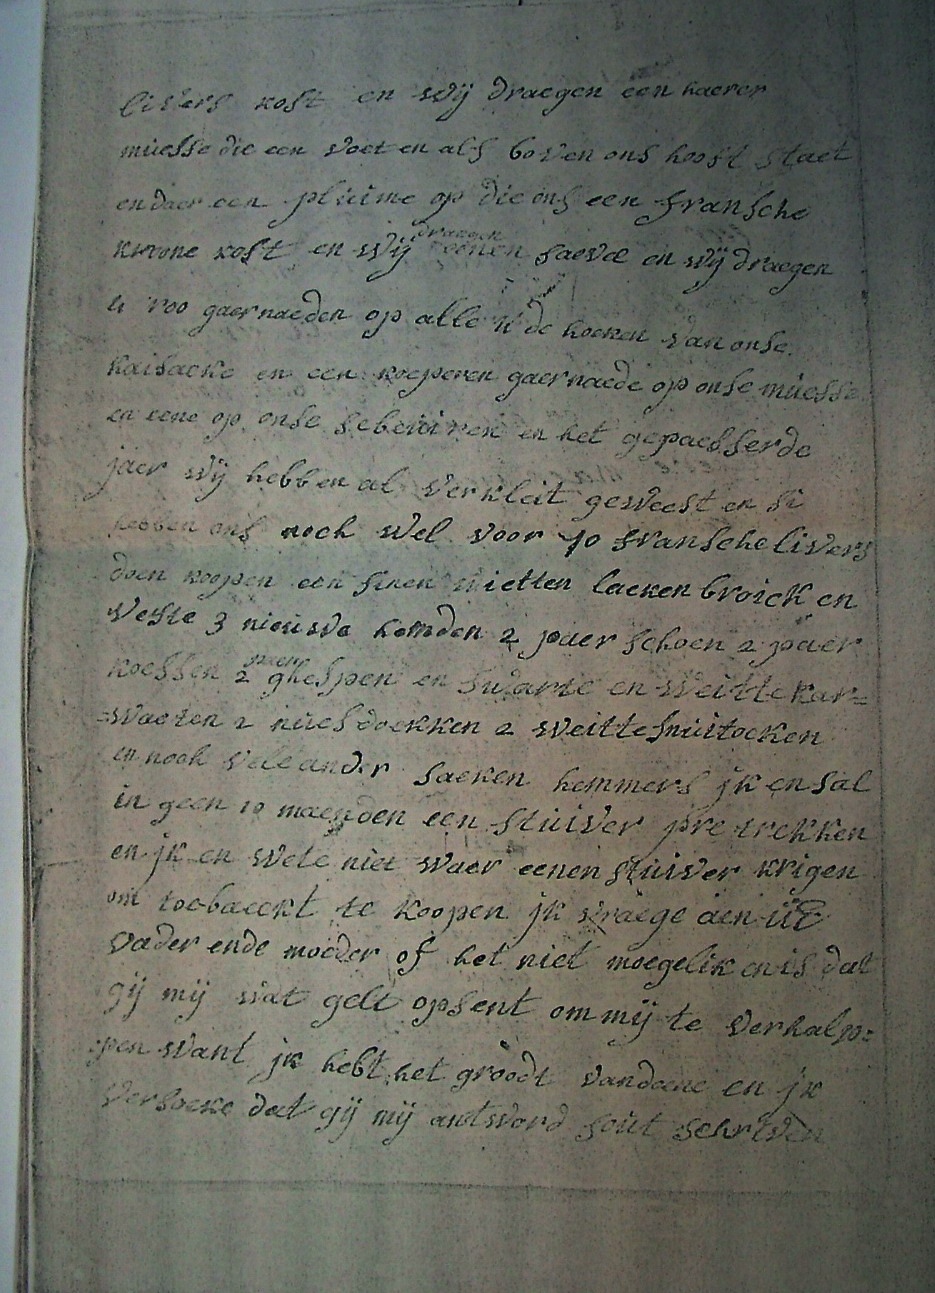 livers kost en wij draegen een haerer
muesse die een voet en alf boven ons hooft staet
en daer een pluime op die ons een fransche
kroone kost en wij draegen eenen saevel en wij draegen
4 roo gaernaeden op alle 4 de hoeken van onse
kaisacke en een koeperen gaernaede op onse muesse
en eene op onse en het gepaesserde
jaer wij hebben al verkleit geweest en si
hebben ons noch wel voor 40 fransche livers
doen koopen een finen witten laeken broick en
veste 3 nieuwe hemden 2 paer schoen 2 paer
koessen 2 paer ghespen en swarte en weitte kar=
=waeten 2 nuesdoekken 2 weitte snuitoeken
en noch vele ander saeken hemmers jk en sal
in geen 10 maenden een stuiver pre trekken
en jk en wete niet waer eenen stuiver krigen
om toebaeckt te koopen jk vraege aen uE
vader ende moeder of het niet moegelik en is dat
gij mij wat gelt opsent om mij te verhalp=
=pen want jk hebt het groodt vandoene en jk
versoeke dat gij mij antword sout schriven